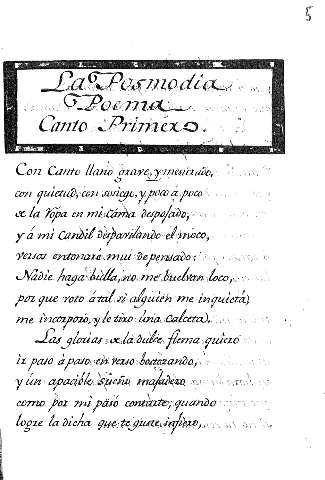 5
La Posmodia
Poema
Canto Primero.
Con Canto llano grave, y mesurado,
con quietud, con sosiego, y poco á poco
de la ropa en mi cama despojado,
y á mi candil despavilando el moco,
versos entonare mui de pensado:
Nadie haga bulla, no me buelvan loco,
porque voto á tal si alguien me inquieta
me incorporo, y le tiro una calceta.
Las glorias de la dulce flema quiero
ir paso á paso en verso bostezando,
y un apacible sueño majadero
como por mi pasó contarte; quando
logre la dicha que te guste infiero,